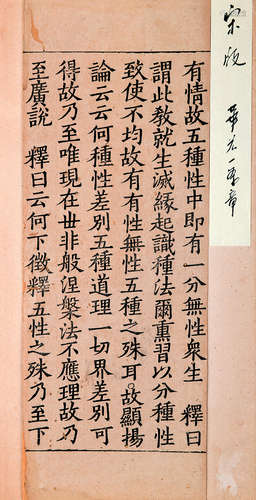 宋版 華一乘章
有情故五種性中即有一分無性衆生 釋曰
謂此教就生滅緣起識種法爾熏習以分種性
致使不均故有有性無性五種之殊耳。故顯揚
論云云何種性差別五種道理一切界差別可
得故乃至唯現在世非般涅槃法不應理故乃
至廣說 釋曰云何下徵釋五性之殊乃至下